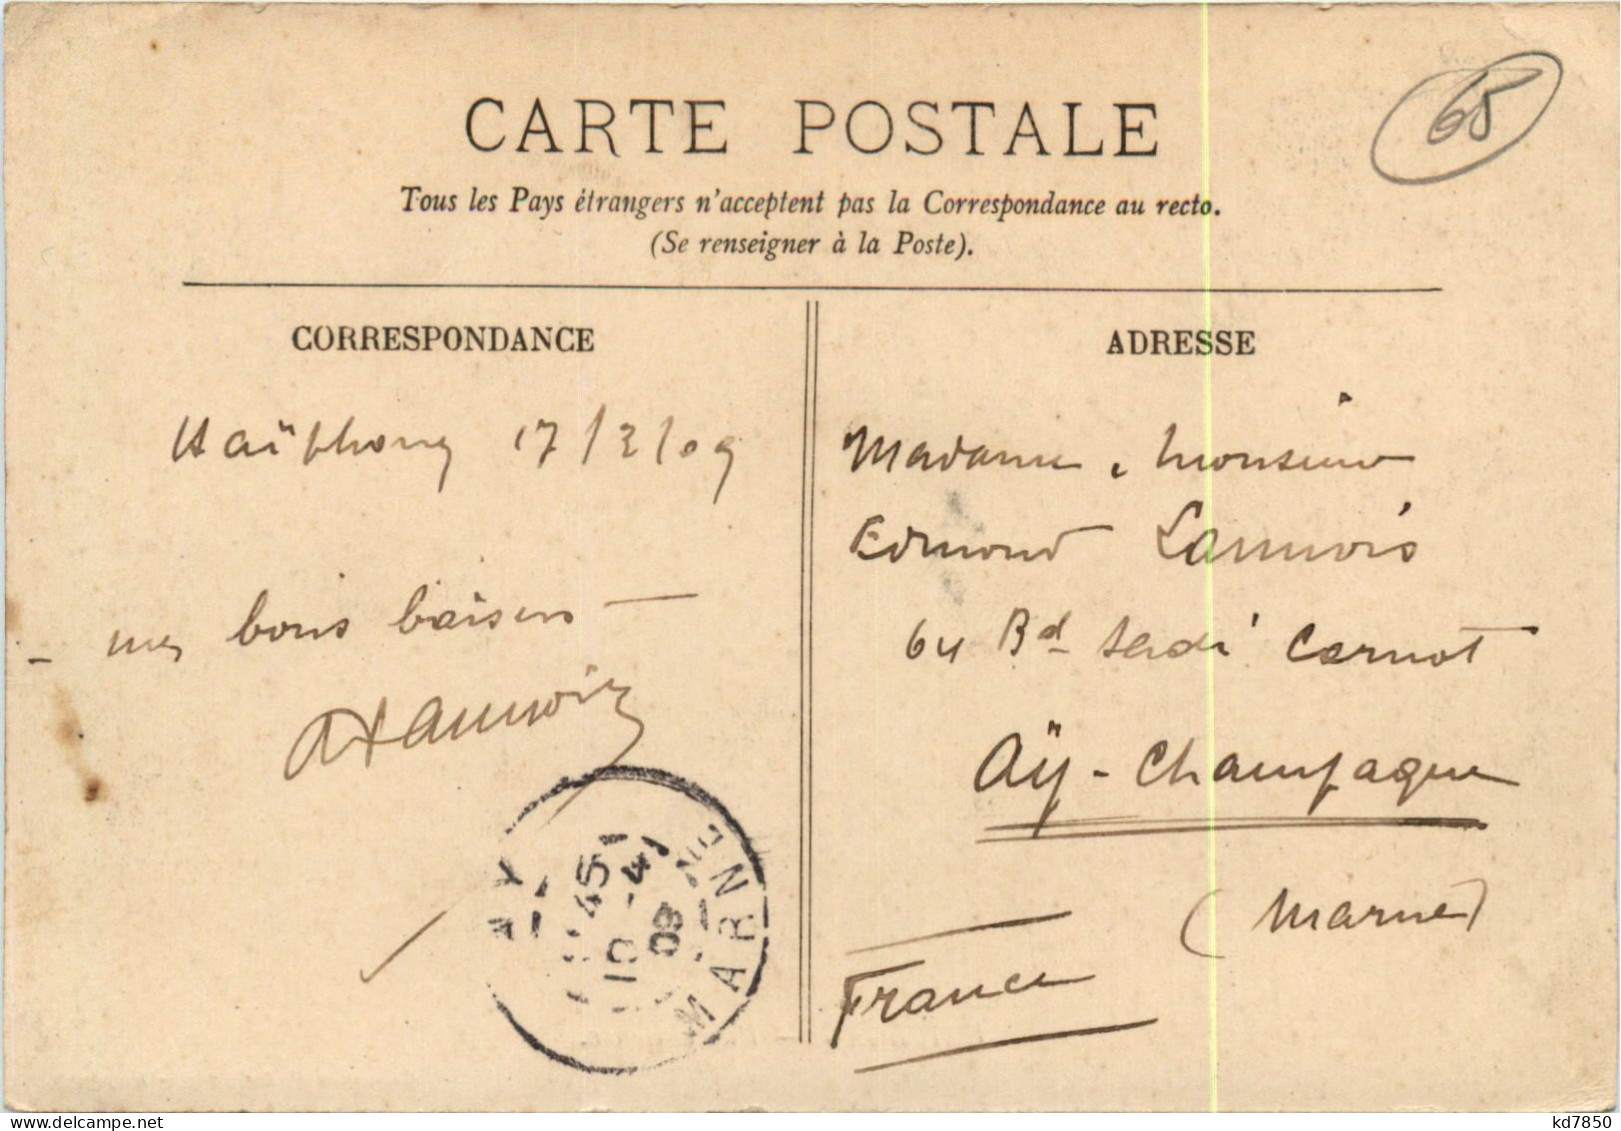 CARTE POSTALE
65
Tous les Pays étrangers n'acceptent pas la Correspondance au recto.
(Se renseigner à la Poste).
CORRESPONDANCE
Haïphong 17/3/09
- mes bons baisers -
ALannois
AY
MARNE
10 - 4
09
ADRESSE
Madame & Monsieur
Edmond Lannois
64 Bd Sadi Carnot
Aÿ-Champagne
(Marne)
France
delcampe.net
kd7850